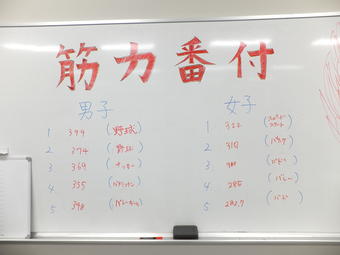 筋力番付
男子
1 399 (野球)
2 374 (野球)
3 369 (サッカー)
4 355 (バドミントン)
5 348 (バレーボール)
女子
1 322 (スピードスケート)
2 310 (バスケ)
3 (バドミ)
4 285 (バレー)
5 282.7 (バド)